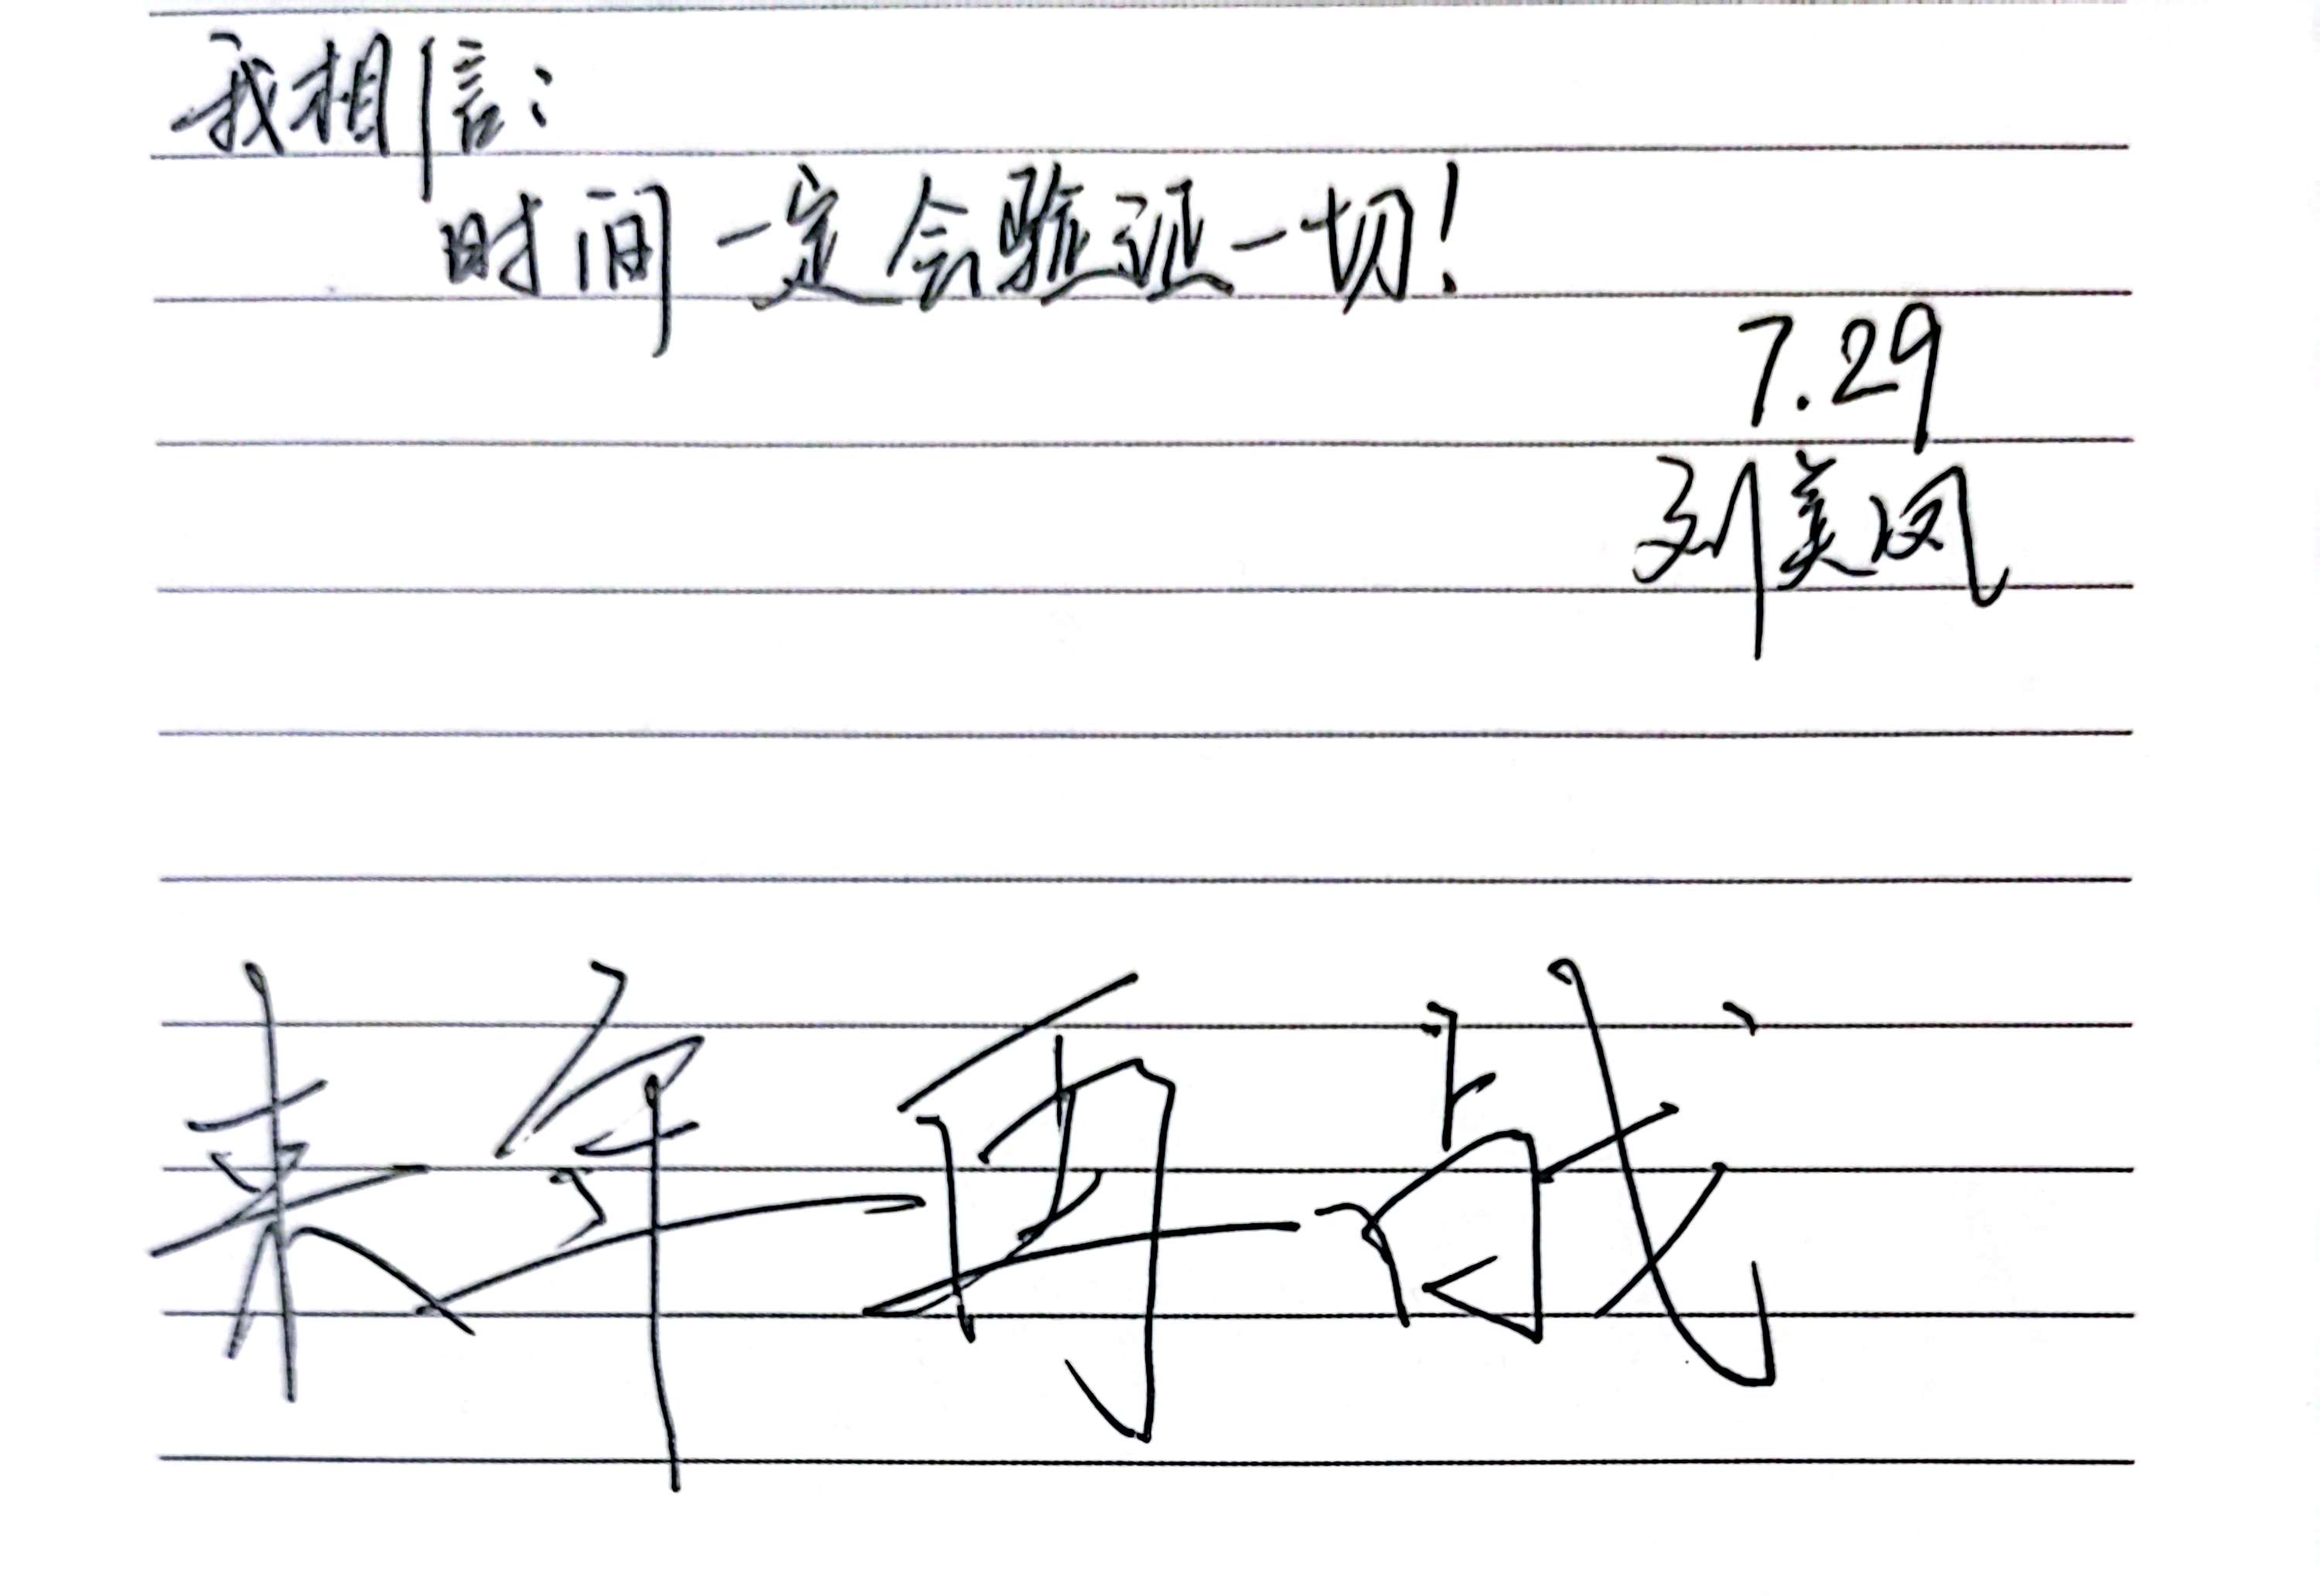 我相信：
时间一定会验证一切！
7.29
刘美凤
来年再战